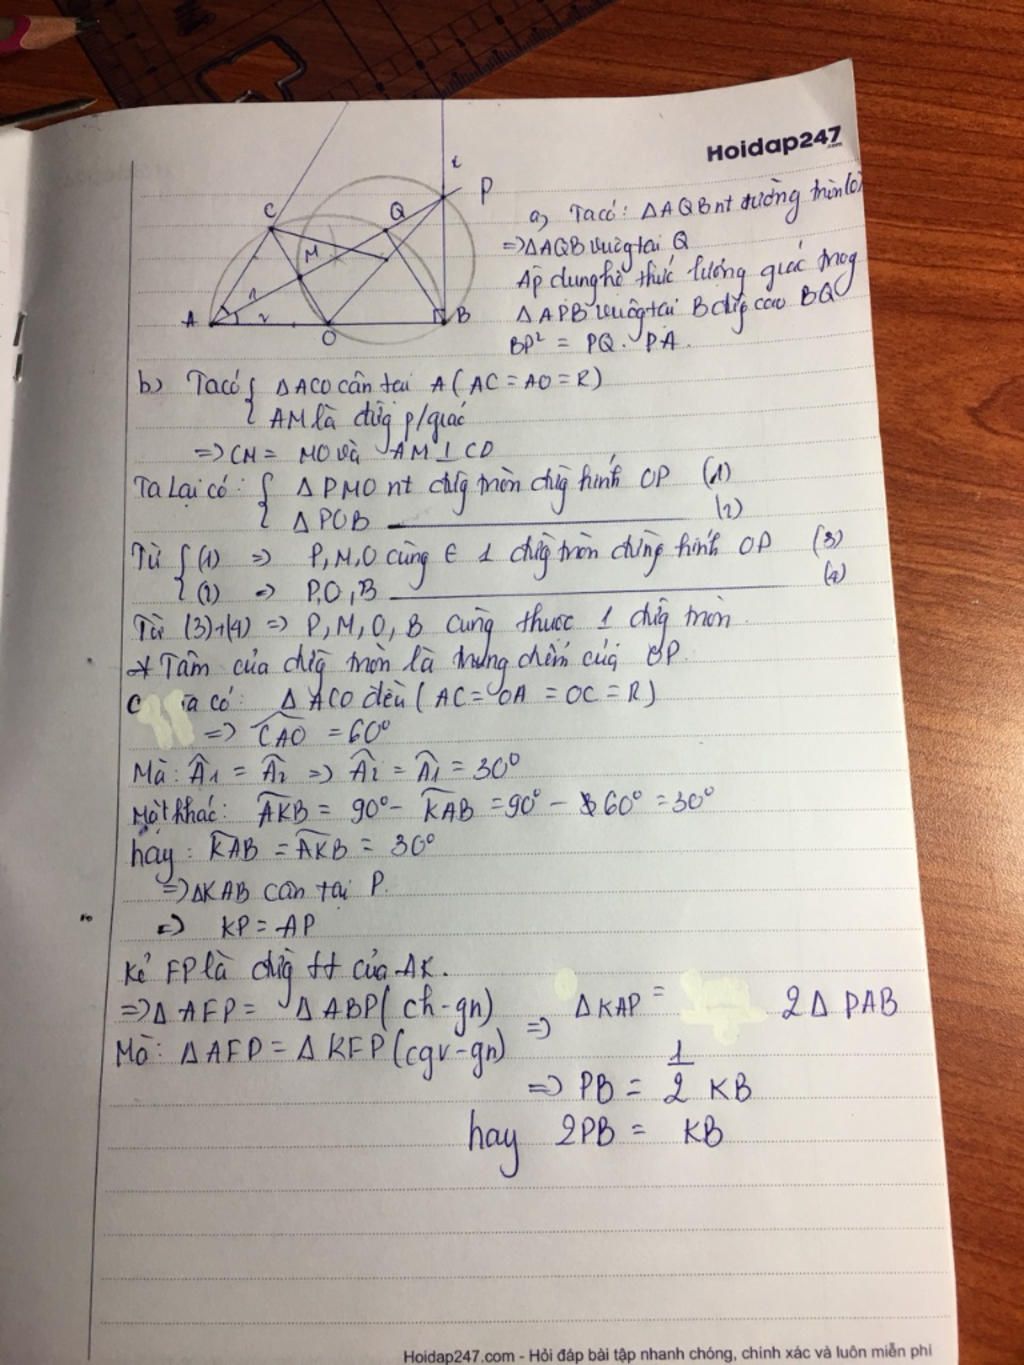 Hoidap247
.com
t
P
C
Q
M
1
2
A
O
B
a, Ta có: ΔAQB nt đường tròn (O)
=> ΔAQB vuông tại Q
Áp dụng hệ thức lượng giác trong
ΔAPB vuông tại B đường cao BQ
BP² = PQ. PA.
b) Ta có { ΔACO cân tại A (AC = AO = R)
AM là đường p/giác
=> CM = MO và AM ⊥ CO
Ta lại có: { ΔPMO nt đường tròn đường kính OP (1)
ΔPOB ———— (2)
Từ { (1) => P, M, O cùng ∈ 1 đường tròn đường kính OP (3)
(2) => P, O, B ———— (4)
Từ (3)+(4) => P, M, O, B cùng thuộc 1 đường tròn
* Tâm của đường tròn là trung điểm của OP.
c a có: ΔACO đều (AC = OA = OC = R)
=> CAO = 60°
Mà: Â1 = Â2 => Â2 = Â1 = 30°
Mặt khác: AKB = 90° - KAB = 90° - 60° = 30°
hay: KAB = AKB = 30°
=> ΔKAB cân tại P.
=> KP = AP
Kẻ FP là đường tt của AK.
=> ΔAFP = ΔABP (ch-gn)
Mà: ΔAFP = ΔKFP (cgv-gn)
=> ΔKAP = 2ΔPAB
=> PB = 1/2 KB
hay 2PB = KB
Hoidap247.com - Hỏi đáp bài tập nhanh chóng, chính xác và luôn miễn phí